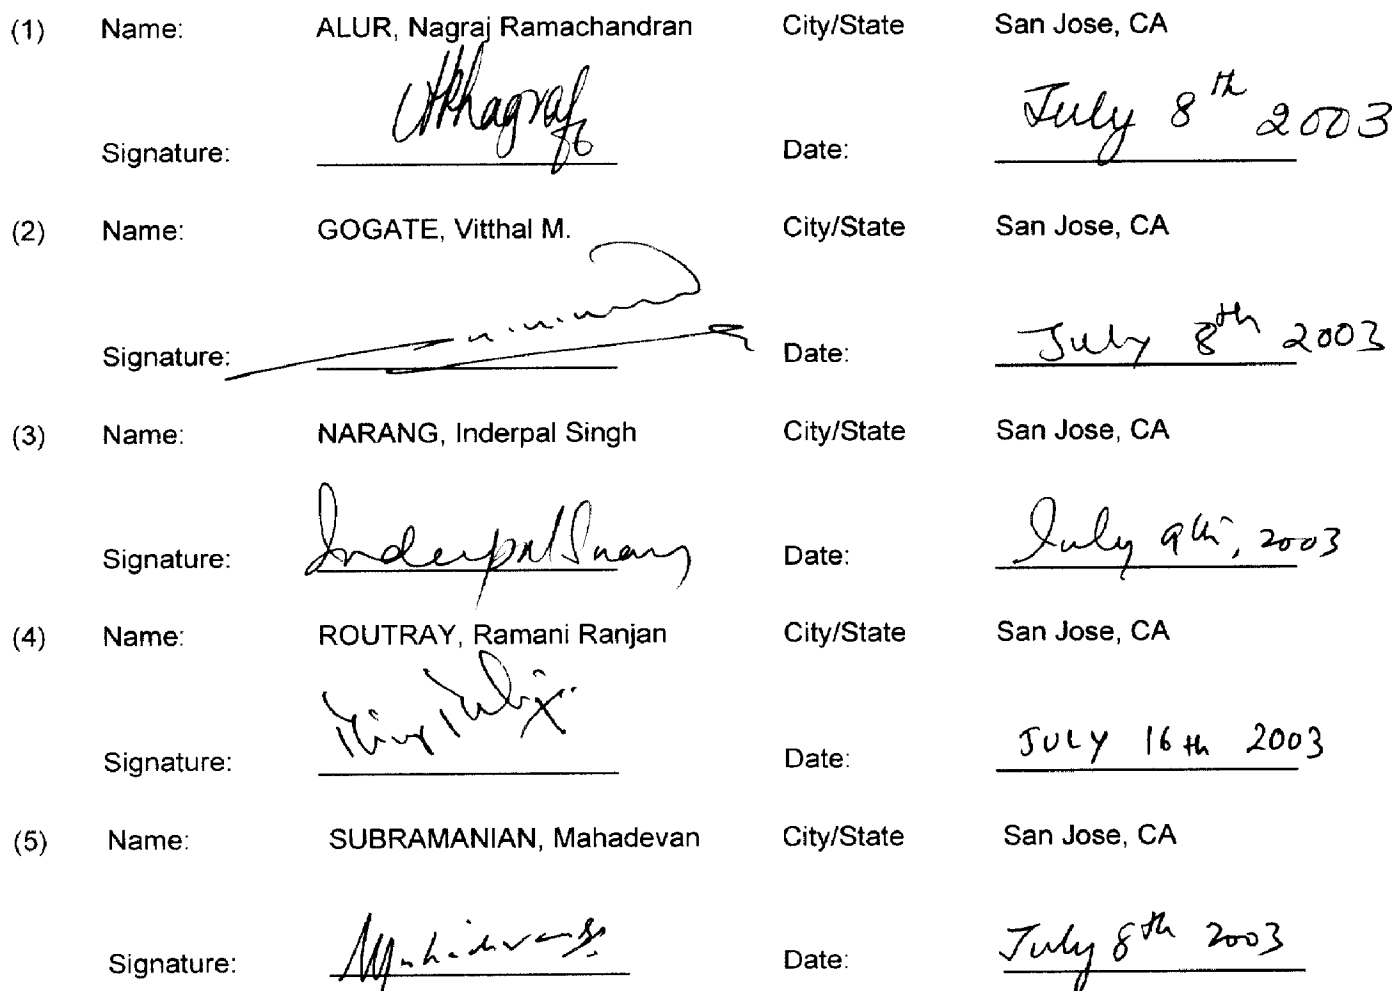 (1) Name: ALUR, Nagraj Ramachandran City/State San Jose, CA
Signature: Date: July 8th 2003
(2) Name: GOGATE, Vitthal M. City/State San Jose, CA
Signature: Date: July 8th 2003
(3) Name: NARANG, Inderpal Singh City/State San Jose, CA
Signature: Inderpal Date: July 9th, 2003
(4) Name: ROUTRAY, Ramani Ranjan City/State San Jose, CA
Signature: Date: JULY 16th 2003
(5) Name: SUBRAMANIAN, Mahadevan City/State San Jose, CA
Signature: Date: July 8th 2003